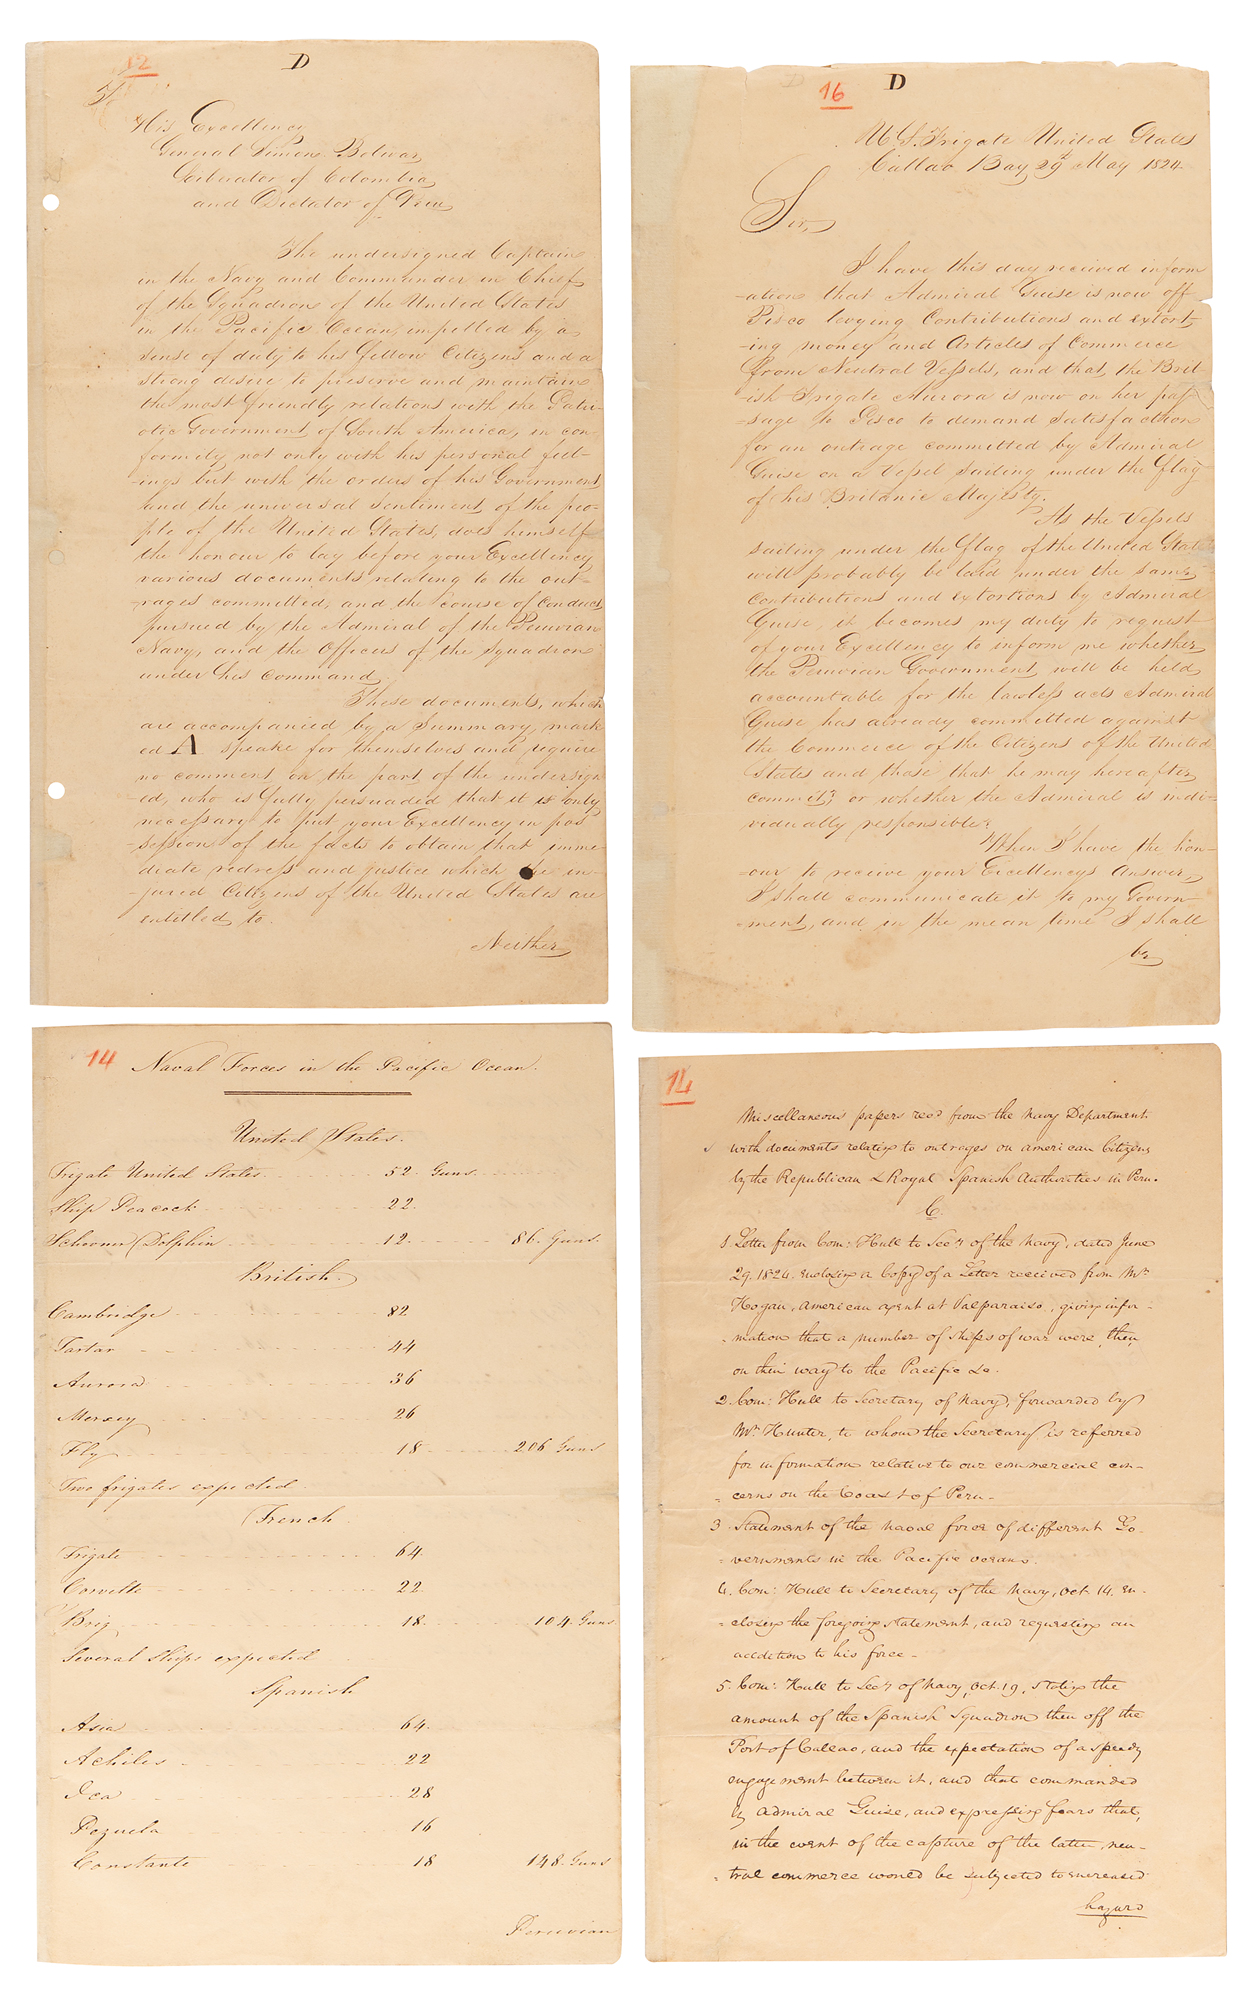 12
D
His Excellency
General Simon Bolivar,
Liberator of Colombia,
and Dictator of Peru,
The undersigned Captain
in the Navy and Commander in Chief
of the Squadron of the United States
in the Pacific Ocean, impelled by a
sense of duty to his fellow Citizens and a
strong desire to preserve and maintain
the most friendly relations with the Patri-
otic Government of South America, in con-
formity not only with his personal feel-
-ings but with the orders of his Government
and the universal sentiment of the peo-
ple of the United States, does himself
the honour to lay before your Excellency
various documents relating to the out-
-rages committed, and the course of conduct
pursued by the Admiral of the Peruvian
Navy, and the Officers of the Squadron
under his command.
These documents, which
are accompanied by a Summary, mark
ed A speake for themselves and require
no comment on the part of the undersign
-ed, who is fully persuaded that it is only
necessary to put your Excellency in pos
-session of the facts to obtain that imme-
diate redress and justice which the in-
-jured Citizens of the United States are
entitled to.
Neither
16
D
U.S. Frigate United States
Callao Bay 29th May 1824.
Sir,
I have this day recieved inform
-ation that Admiral Guise is now off
Pisco levying Contributions and extort-
-ing money and Articles of Commerce
from Neutral Vessels, and that the Brit-
ish Frigate Aurora is now on her pas-
-sage to Pisco to demand satisfaction
for an outrage committed by Admiral
Guise on a Vessel sailing under the flag
of his Britanic Majesty.
As the Vessels
sailing under the flag of the United Stat
will probably be laid under the same
contributions and extortions by Admiral
Guise, it becomes my duty to request
of your Excellency to inform me whether
the Peruvian Government will be held
accountable for the lawless acts Admiral
Guise has already committed against
the Commerce of the Citizens of the United
States and those that he may hereafter
commit; or whether the Admiral is indi-
vidually responsible?
When I have the hon-
-our to receive your Excellencys Answer,
I shall communicate it to my Govern-
ment, and in the mean time I shall
be
14
Naval Forces in the Pacific Ocean.
United States.
Frigate United States 52. Guns
Ship Peacock 22.
Schooner Dolphin 12. 86. Guns.
British.
Cambridge 82
Tartar 44
Aurora 36
Mersey 26
Fly 18 206 Guns
Two frigates expected.
French.
Frigate 64.
Corvette 22.
Brig 18. 104. Guns
Several Ships expected
Spanish
Asia 64.
Achilles 22
Ica 28
Pezuela 16
Constante 18 148. Guns
Peruvian
14
Miscellaneous papers recd from the Navy Department
with documents relating to outrages on American Citizens
by the Republican & Royal Spanish Authorities in Peru.
C.
1 Letter from Com: Hull to Secy of the Navy, dated June
29. 1824. enclosing a Copy of a Letter received from Mr
Hogan, American agent at Valparaiso, giving infor-
-mation that a number of ships of war were then
on their way to the Pacific &c.
2. Com: Hull to Secretary of Navy, forwarded by
Mr Hunter, to whom the Secretary is referred
for information relative to our commercial con-
-cerns on the Coast of Peru.
3 Statement of the naval force of different Go-
-vernments in the Pacific oceans.
4. Com: Hull to Secretary of the Navy, Oct. 14. en-
-closing the foregoing statement, and requesting an
addition to his force.
5. Com: Hull to Secy of Navy, Oct. 19, stating the
amount of the Spanish Squadron then off the
Port of Callao, and the expectation of a speedy
engagement between it, and that commanded
by Admiral Guise, and expressing fears that,
in the event of the capture of the latter, neu-
-tral commerce would be subjected to increased
hazard